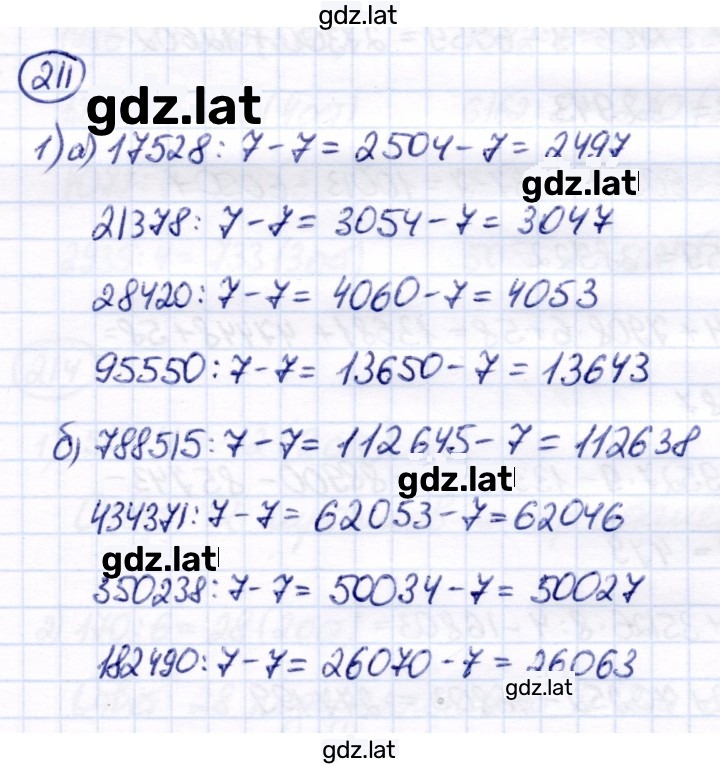 gdz.lat
211
gdz.lat
1) а) 17528 : 7 - 7 = 2504 - 7 = 2497
gdz.lat
21378 : 7 - 7 = 3054 - 7 = 3047
28420 : 7 - 7 = 4060 - 7 = 4053
95550 : 7 - 7 = 13650 - 7 = 13643
б) 788515 : 7 - 7 = 112645 - 7 = 112638
gdz.lat
434371 : 7 - 7 = 62053 - 7 = 62046
gdz.lat
350238 : 7 - 7 = 50034 - 7 = 50027
182490 : 7 - 7 = 26070 - 7 = 26063
gdz.lat
gdz.lat